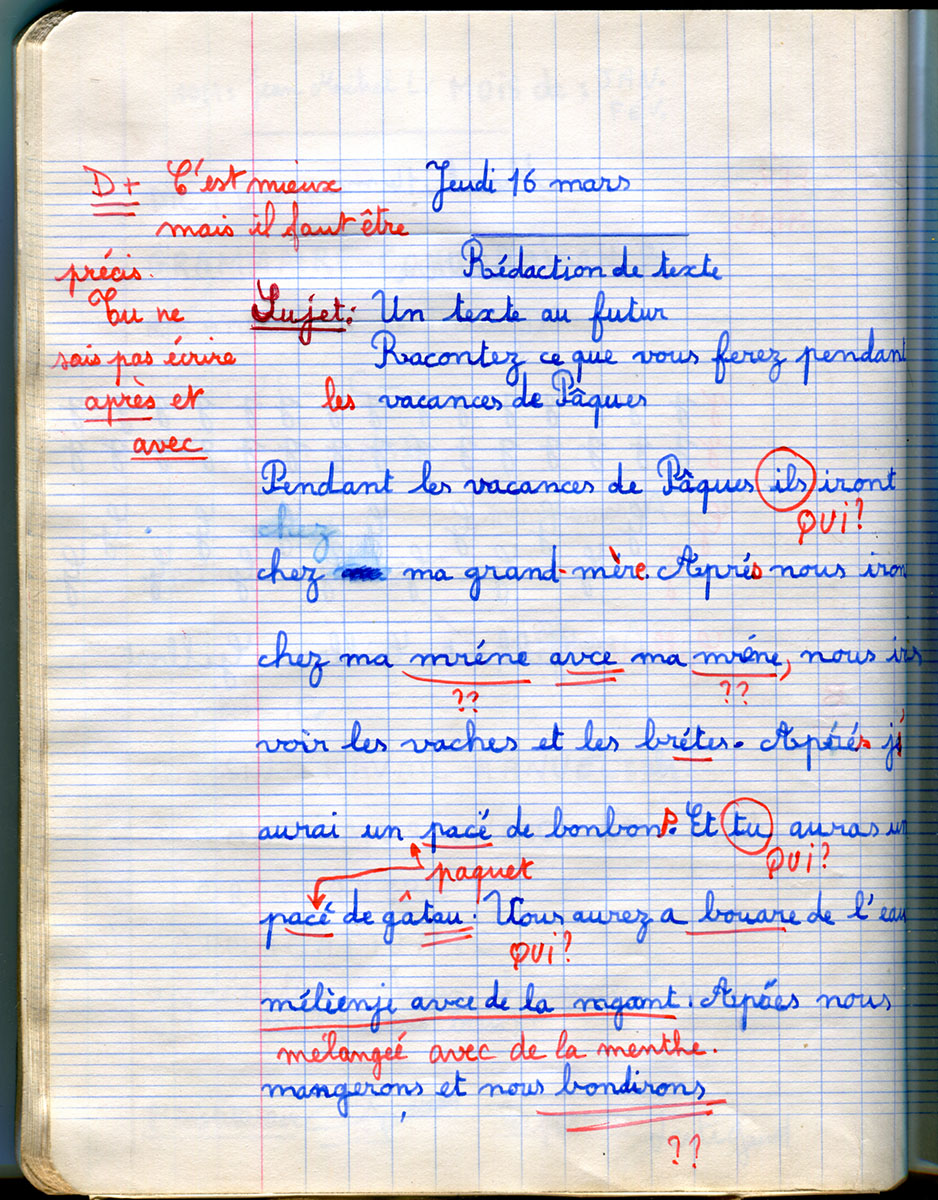 D+ C'est mieux Jeudi 16 mars
mais il faut être
précis. Rédaction de texte
Tu ne Sujet: Un texte au futur
sais pas écrire Racontez ce que vous ferez pendant
après et les vacances de Pâques
avec
Pendant les vacances de Pâques ils iront
QUI?
chez
chez ma grand-mère. Après nous iron
chez ma mréne avce ma mréne, nous irs
?? ??
voir les vaches et les brétes. Aprés j'
aurai un pacé de bonbons. Et tu auras un
paquet QUI?
pacé de gâtau. Vous aurez a bouare de l'eau
QUI?
mélienji avce de la magamt. Apáes nous
mélangeé avec de la menthe.
mangerons et nous bondirons
??